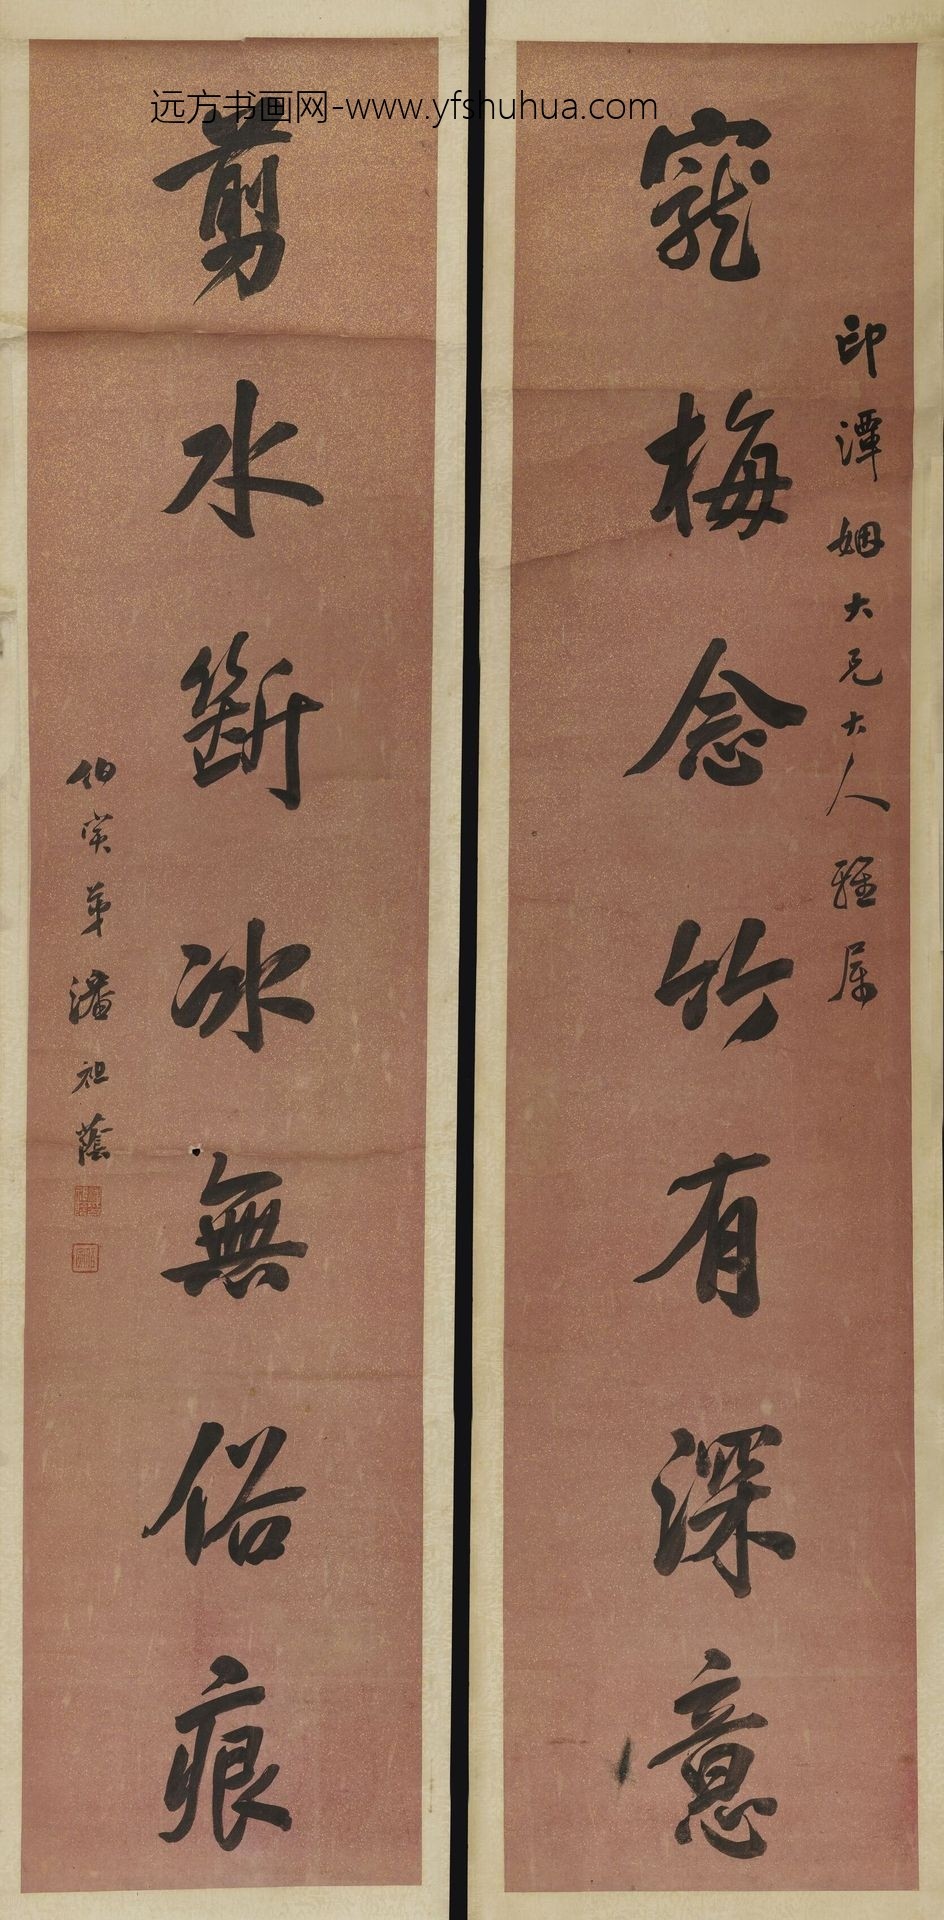 远方书画网-www.yfshuhua.com
印潭姻大兄大人雅属
寵梅念竹有深意
剪水斲冰無俗痕
伯寅弟潘祖蔭